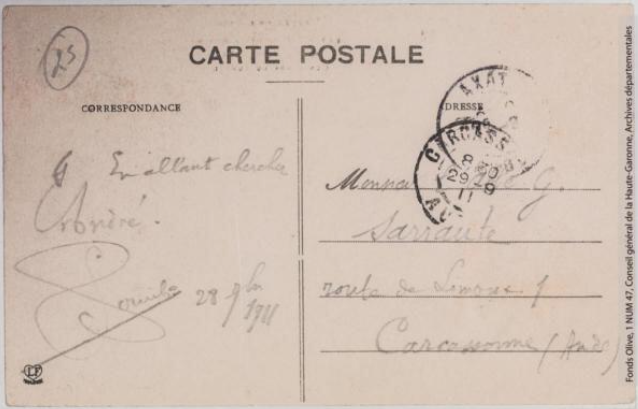 25
CARTE POSTALE
CORRESPONDANCE
ADRESSE
AXAT
CARCASS
8 30
29 9
11
AU
En allant chercher
André.
28 9bre 1911
G.
Sarraute
route de Limoux 1
Carcassonne (Aude)
LF
Fonds Olive, 1 NUM 47, Conseil général de la Haute-Garonne, Archives départementales